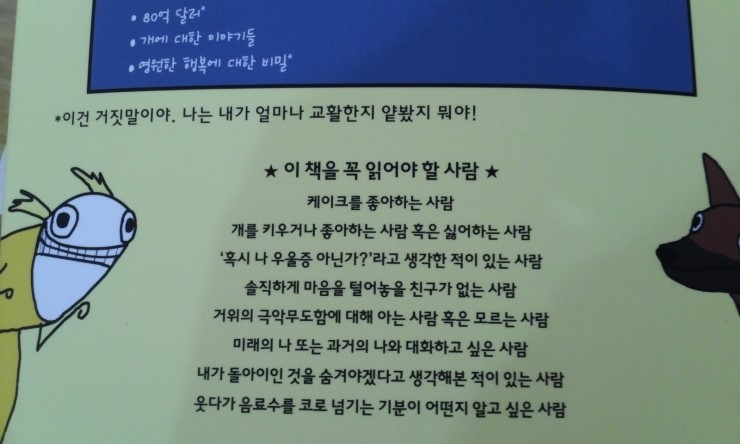 • 80억 달러*
• 개에 대한 이야기들
• 영원한 행복에 대한 비밀*
*이건 거짓말이야. 나는 내가 얼마나 교활한지 얕봤지 뭐야!
★ 이 책을 꼭 읽어야 할 사람 ★
케이크를 좋아하는 사람
개를 키우거나 좋아하는 사람 혹은 싫어하는 사람
‘혹시 나 우울증 아닌가?’라고 생각한 적이 있는 사람
솔직하게 마음을 털어놓을 친구가 없는 사람
거위의 극악무도함에 대해 아는 사람 혹은 모르는 사람
미래의 나 또는 과거의 나와 대화하고 싶은 사람
내가 돌아이인 것을 숨겨야겠다고 생각해본 적이 있는 사람
웃다가 음료수를 코로 넘기는 기분이 어떤지 알고 싶은 사람